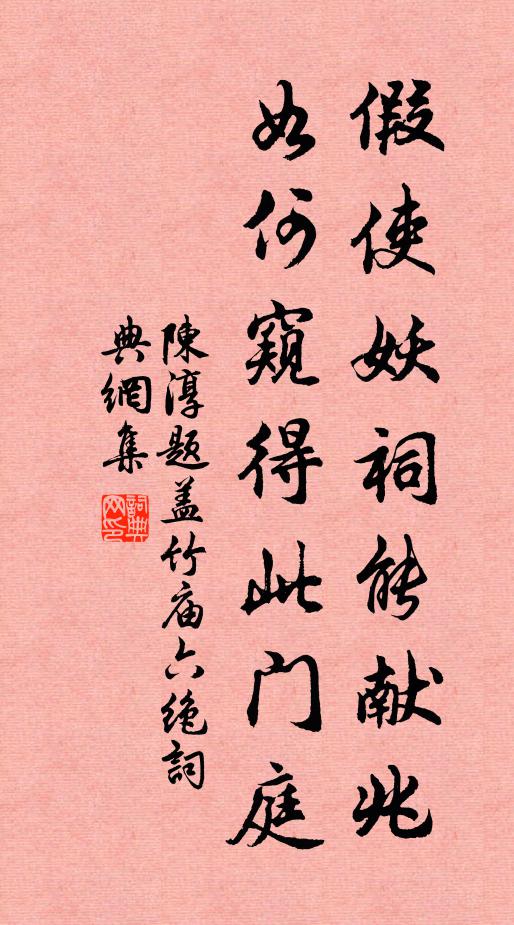 假使妖祠能献兆
如何窥得此门庭
陳淳题盖竹庙六绝詞
典網集
詞典网印